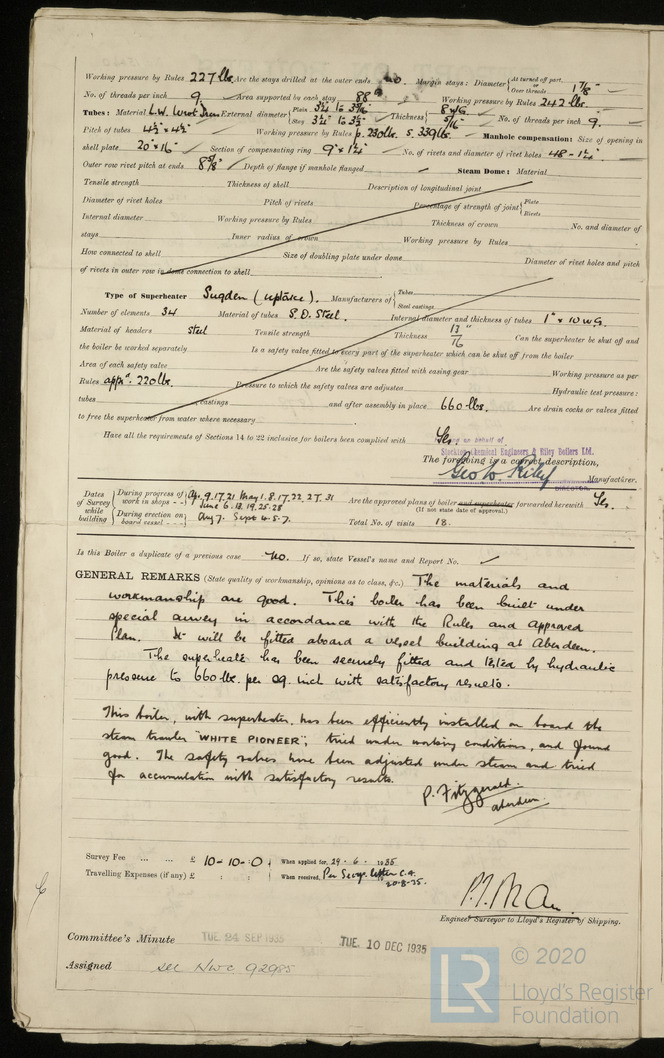 Working pressure by Rules 227 lbs. Are the stays drilled at the outer ends no. Margin stays: Diameter { At turned off part, or Over threads 1 7/8"
No. of threads per inch 9 Area supported by each stay 88 Working pressure by Rules 242 lbs.
Tubes: Material L.W. Wrot Iron External diameter { Plain 3¼" to 3½" Stay 3¼" to 3½" Thickness { 8 WG 5/16" No. of threads per inch 9.
Pitch of tubes 4½" x 4½" Working pressure by Rules p. 230 lbs. S. 339 lbs. Manhole compensation: Size of opening in
shell plate 20" x 16" Section of compensating ring 9" x 1¼" No. of rivets and diameter of rivet holes 48 - 1¼"
Outer row rivet pitch at ends 8 5/8" Depth of flange if manhole flanged Steam Dome: Material
Tensile strength Thickness of shell Description of longitudinal joint
Diameter of rivet holes Pitch of rivets Percentage of strength of joint { Plate Rivets
Internal diameter Working pressure by Rules Thickness of crown No. and diameter of
stays Inner radius of crown Working pressure by Rules
How connected to shell Size of doubling plate under dome Diameter of rivet holes and pitch
of rivets in outer row in dome connection to shell
Type of Superheater Sugden (uptake). Manufacturers of { Tubes Steel castings
Number of elements 34 Material of tubes S.D. Steel. Internal diameter and thickness of tubes 1" x 10 WG.
Material of headers steel Tensile strength Thickness 13/16" Can the superheater be shut off and
the boiler be worked separately Is a safety valve fitted to every part of the superheater which can be shut off from the boiler
Area of each safety valve Are the safety valves fitted with easing gear Working pressure as per
Rules appd. 220 lbs. Pressure to which the safety valves are adjusted Hydraulic test pressure:
tubes castings and after assembly in place 660 lbs. Are drain cocks or valves fitted
to free the superheater from water where necessary
Have all the requirements of Sections 14 to 22 inclusive for boilers been complied with Yes
on behalf of
Stockton Chemical Engineers & Riley Boilers Ltd.
The foregoing is a correct description,
Geo W. Riley Manufacturer.
DIRECTOR
Dates of Survey while building { During progress of work in shops - - } Ap. 9. 17. 21 May 1. 8. 17. 22. 27. 31 June 6. 13. 19. 25. 28
{ During erection on board vessel - - - } Aug 7. Sept 4. 5. 7.
Are the approved plans of boiler and superheater forwarded herewith Yes.
(If not state date of approval.)
Total No. of visits 18.
Is this Boiler a duplicate of a previous case No. If so, state Vessel's name and Report No.
GENERAL REMARKS (State quality of workmanship, opinions as to class, &c.) The materials and
workmanship are good. This boiler has been built under
special survey in accordance with the Rules and approved
Plan. It will be fitted aboard a vessel building at Aberdeen.
The superheater has been securely fitted and tested by hydraulic
pressure to 660 lbs. per sq. inch with satisfactory results.
This boiler, with superheater, has been efficiently installed on board the
steam trawler "WHITE PIONEER", tried under working conditions, and found
good. The safety valves have been adjusted under steam and tried
for accumulation with satisfactory results.
P. Fitzgerald.
Aberdeen.
Survey Fee ... ... £ 10-10-0 { When applied for, 29-6-1935
Travelling Expenses (if any) £ : : { When received, Per Secy's letter C.A. 20-8-35.
Engineer Surveyor to Lloyd's Register of Shipping.
Committee's Minute TUE. 24 SEP 1935 TUE. 10 DEC 1935
Assigned see Nwc 92985
© 2020
LR
Lloyd's Register
Foundation